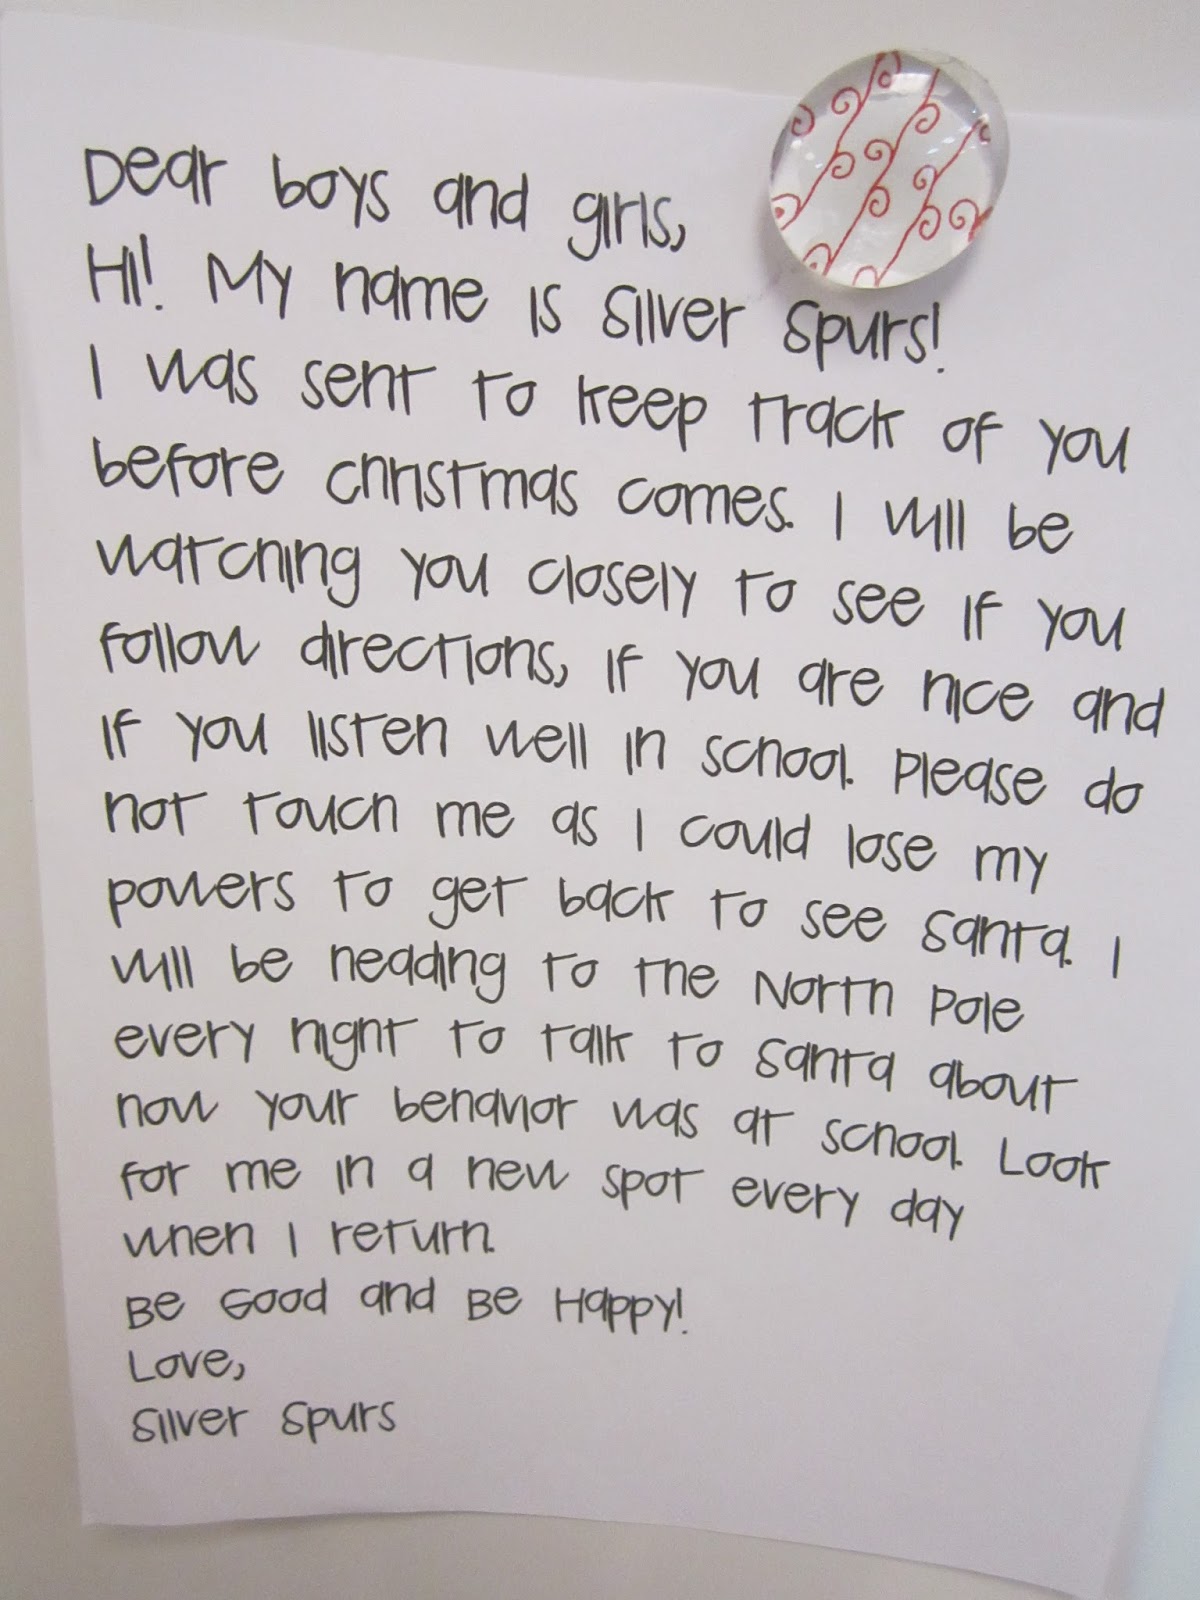 Dear boys and girls,
Hi! My name is Silver Spurs!
I was sent to keep track of you
before christmas comes. I will be
watching you closely to see if you
follow directions, if you are nice and
if you listen well in school. Please do
not touch me as I could lose my
powers to get back to see Santa. I
will be heading to the North Pole
every night to talk to Santa about
how your behavior was at school. Look
for me in a new spot every day
when I return.
Be Good and Be Happy!
Love,
Silver Spurs